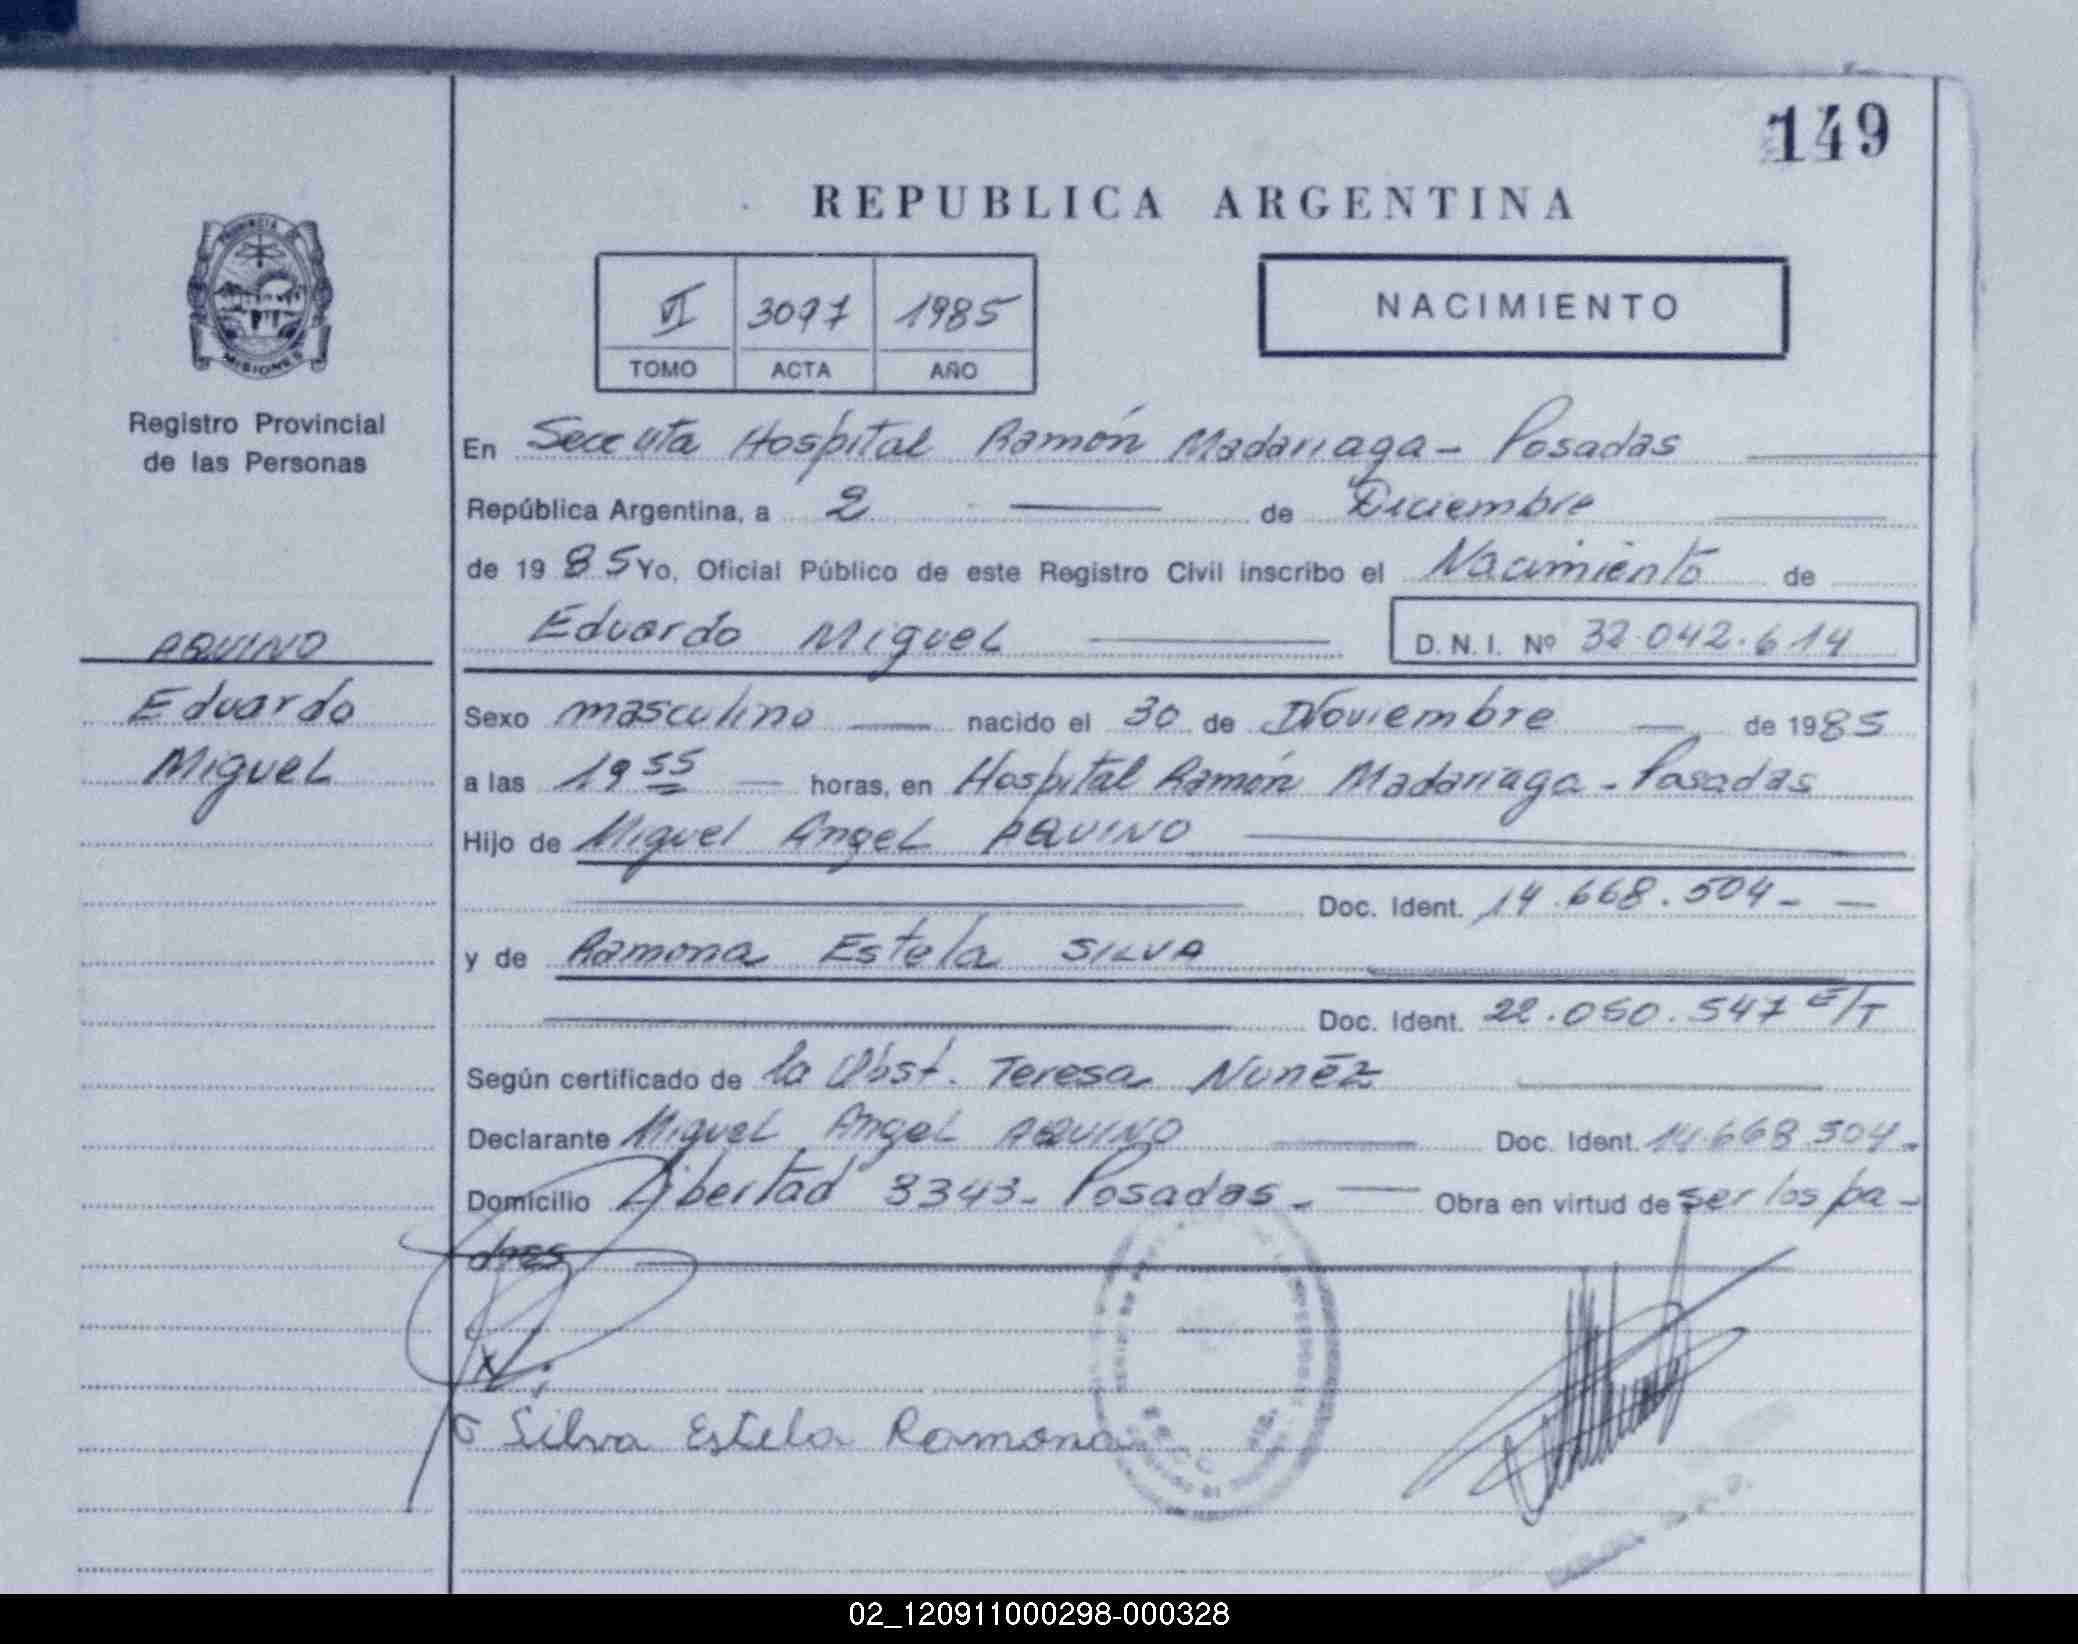 149
REPUBLICA ARGENTINA
PROVINCIA DE
MISIONES
Registro Provincial
de las Personas
VI 3097 1985
TOMO ACTA AÑO
NACIMIENTO
En Hospital Ramón Madariaga - Posadas
República Argentina, a 2 de Diciembre
de 1985 Yo, Oficial Público de este Registro Civil inscribo el Nacimiento de
Eduardo Miguel D. N. I. Nº 32.042.614
AQUINO
Eduardo
Miguel
Sexo masculino nacido el 30 de Noviembre de 1985
a las 19 55 horas, en Hospital Ramón Madariaga - Posadas
Hijo de Miguel Angel AQUINO
Doc. Ident. 14.668.504 -
y de Ramona Estela SILVA
Doc. Ident. 22.050.547 E/T
Según certificado de la Obst. Teresa Nunéz
Declarante Miguel Angel AQUINO Doc. Ident. 14.668.504 -
Domicilio Libertad 3343 - Posadas - Obra en virtud de ser los pa -
dres
Silva Estela Ramona
02_120911000298-000328